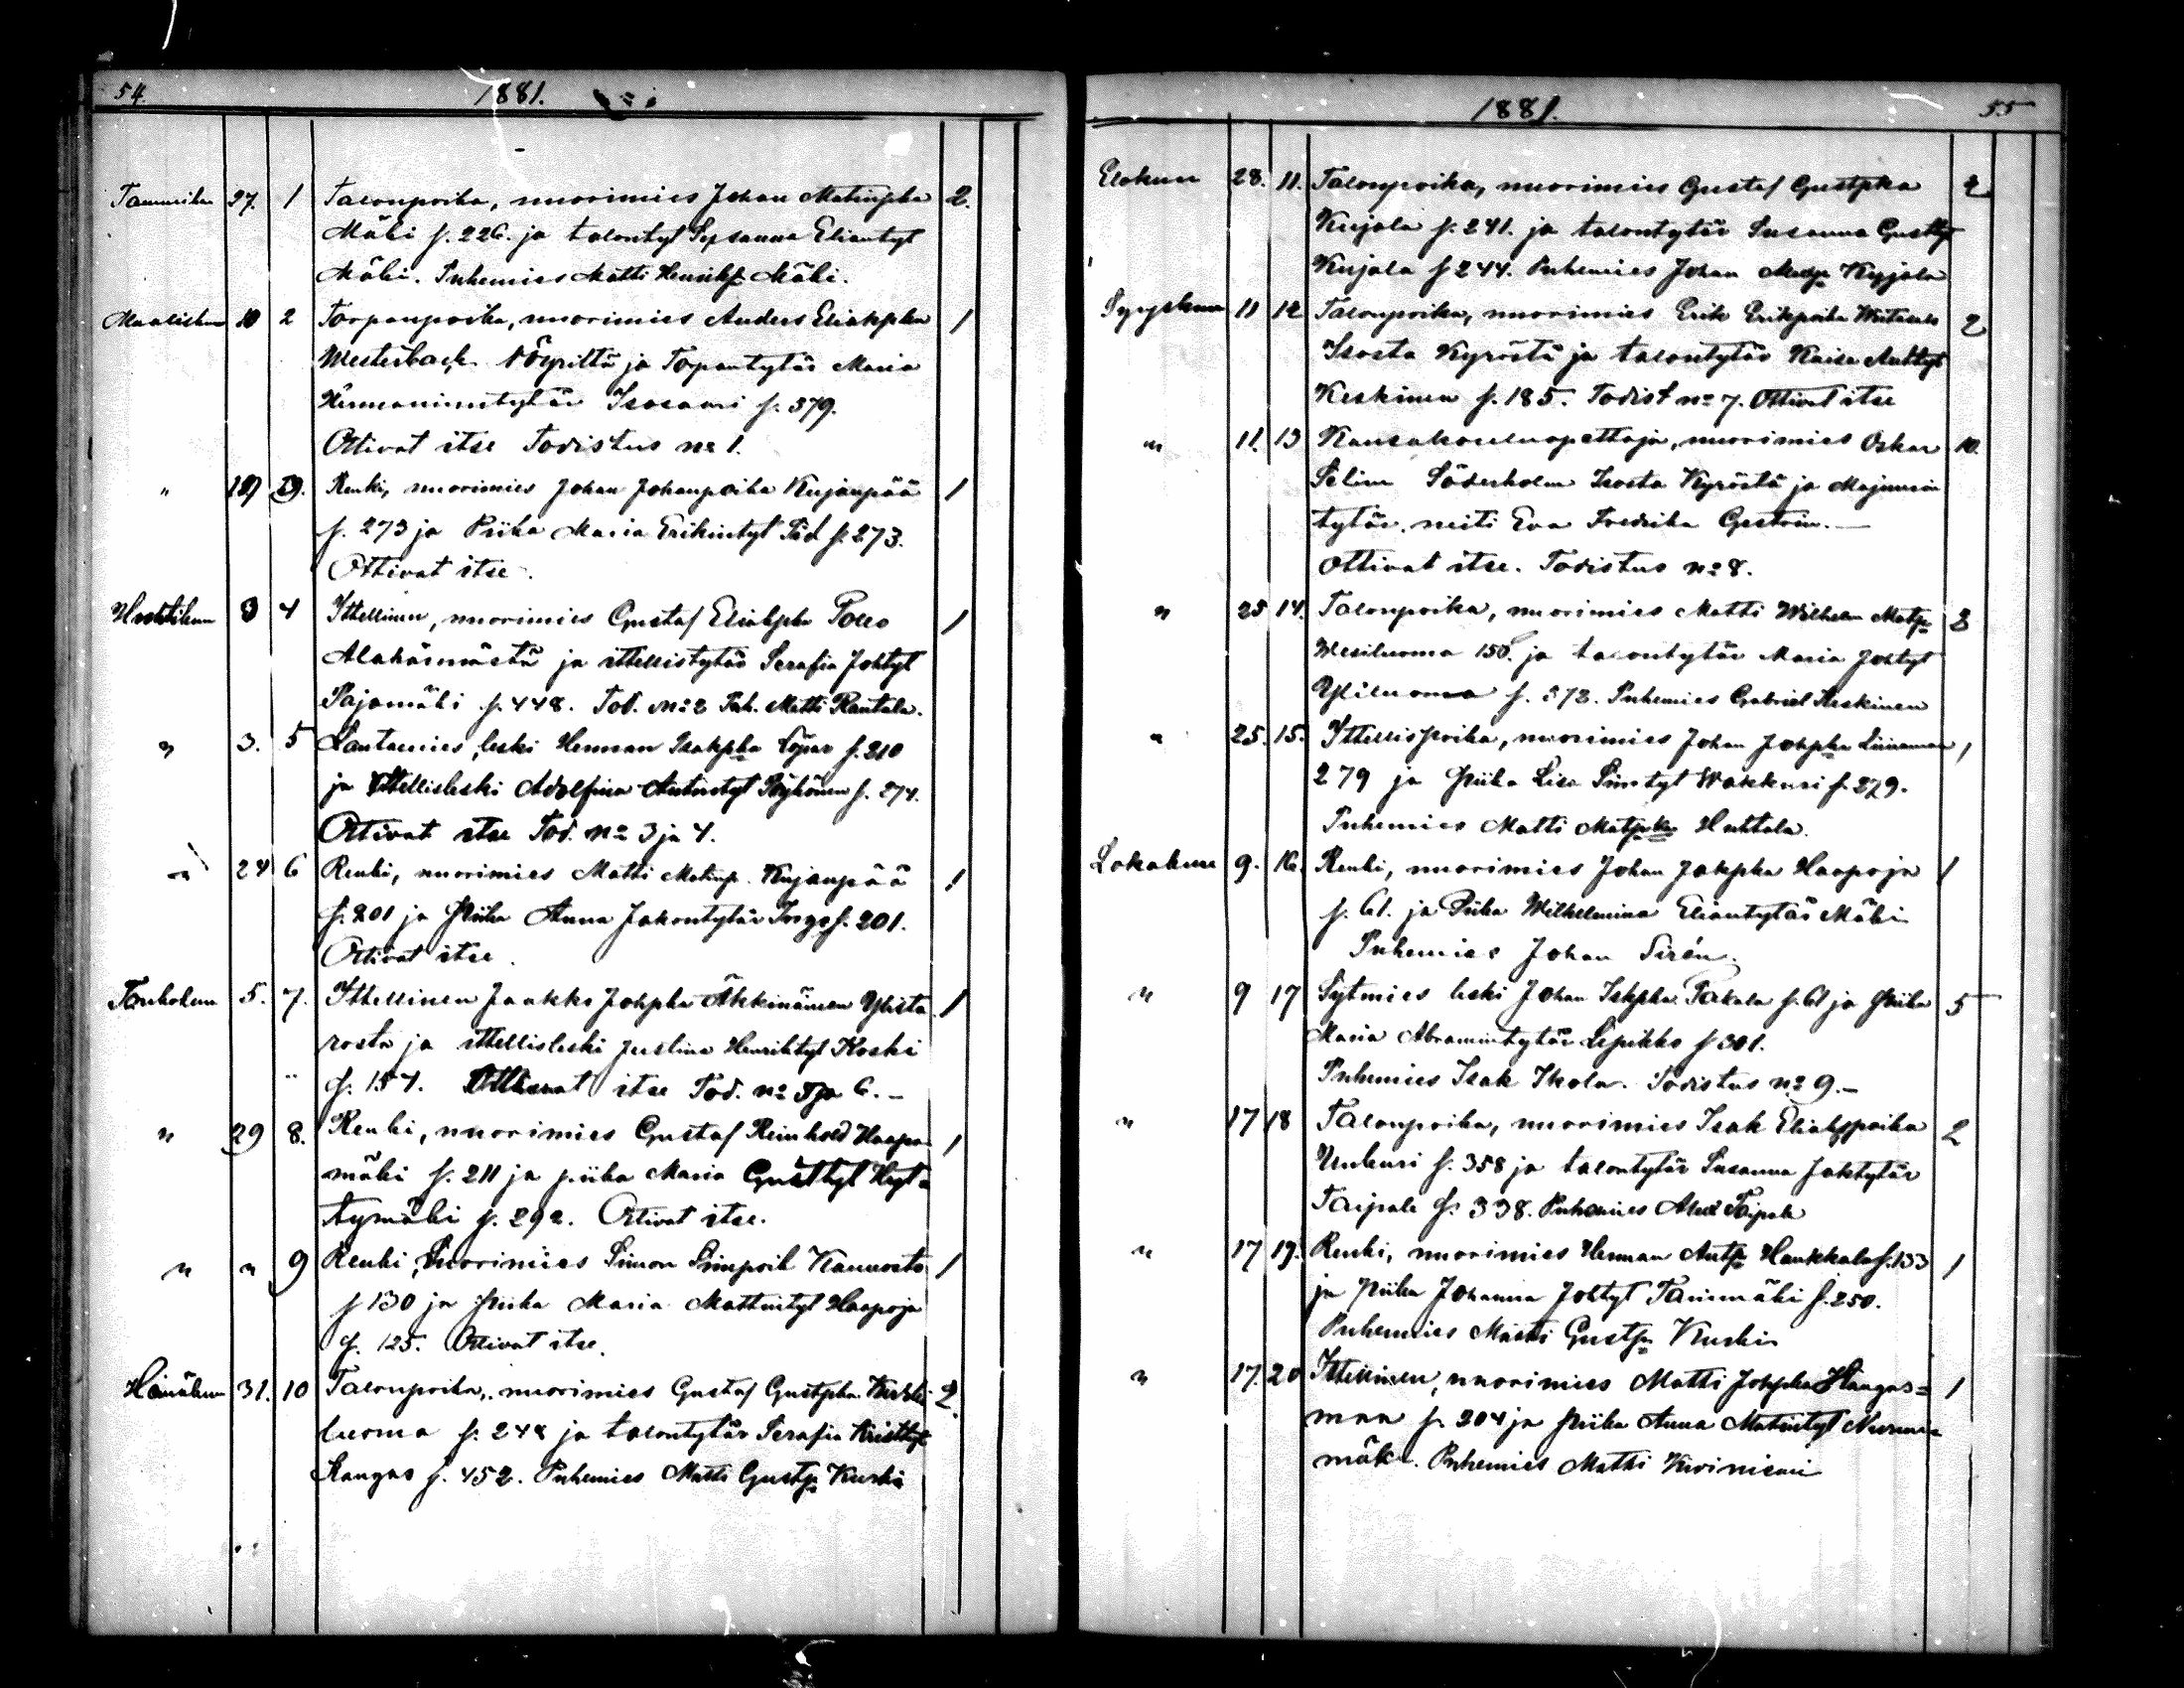 54.
1881.
Tammikun 27. 1 Talonpoika, nuorimies Johan Matinpka 2.
Mäki s. 226. ja talontyt Susanna Eliantyt
Mäki. Puhemies Matti Henrikp Mäki.
Maaliskun 10 2 Torpanpoika, nuorimies Anders Eliakpka 1
Westerback Nöyriltä ja Torpantytär Maria
Hermanintytär Isosaari s. 379.
Ottivat itse Todistus no 1.
" 19 3. Renki, nuorimies Johan Johanpoika Kujanpää 1
s. 273 ja Piika Maria Erikintyt s. 273.
Ottivat itse.
Huhtikun 3 4 Ittellinen, nuorimies Gustaf Eliakpka Pollo 1
Alahärmästä ja ittellistytär Serafia Johtyt
Pajamäki s. 448. Tod. no 2 Puh. Matti Rantala.
" 3. 5 leski Herman Isakpka s. 210
ja Ittellisleski Adolfina Antintyt s. 274.
Ottivat itse Tod. no 3 ja 4.
" 24 6 Renki, nuorimies Matti Matinp. Kujanpää 1
s. 201 ja Piika Anna Jakontytär s. 201.
Ottivat itse.
Toukokun 5. 7. Ittellinen Jaakko Johpka Äkkinäinen Ylista 1
rosta ja ittellisleski Justina Henriktyt Koski
s. 154. Ottivat itse Tod. no 5 ja 6. -
" 29 8. Renki, nuorimies Gustaf Reinhold Haapa- 1
mäki s. 211 ja piika Maria Gusttyt
s. 292. Ottivat itse.
" " 9 Renki, Nuorimies Simon Simpoik Kaunosto 1
s 130 ja Piika Maria Mattintyt Haapoja
s. 125. Ottivat itse.
Heinäkun 31. 10 Talonpoika, nuorimies Gustaf Gustpka 2.
luoma s. 248 ja talontytär Serafia Kristtyt
Kangas s. 452. Puhemies Matti Gustp Kuski
1881.
55
Elokuu 28. 11. Talonpoika, nuorimies Gustaf Gustpka 2
Kujala s. 241. ja talontytär Susanna Gusttyt
Kujala s 244. Puhemies Johan Kujala
Syyskuu 11 12 Talonpoika, nuorimies Erik Erikpoika 2
Isosta Kyröstä ja talontytär Kaisa Anttyt
Keskinen s. 185. Todist no 7. Ottivat itse
" 11. 13 Kansakouluopettaja, nuorimies Oskar 10.
Selim Söderholm Isosta Kyröstä ja Majurin
tytär, neiti Eva Fredrika Gestrin. —
Ottivat itse. Todistus no 8.
" 25 14. Talonpoika, nuorimies Matti Wilhelm Matp 2
Wesiluoma 150. ja talontytär Maria Johtyt
Yliluoma s. 372. Puhemies Gabriel Keskinen
" 25. 15. Ittellispoika, nuorimies Johan Johpka 1
279 ja Piika Lisa Simtyt Wakkuri s. 279.
Puhemies Matti Matpka Huhtala.
Lokakuu 9. 16. Renki, nuorimies Johan Jakpka Haapoja 1
s. 61. ja Piika Wilhelmina Eliantytär Mäki
Puhemies Johan Sirén.
" 9 17 Sytmies leski Johan Iskpka Pakala s. 61 ja Piika 5
Maria Abramintytär Lepikko s 301.
Puhemies Isak Ikola. Todistus no 9. -
" 17 18 Talonpoika, nuorimies Isak Eliakppoika 2
Unkuri s. 358 ja talontytär Susanna Jaktytär
Taipale s. 338. Puhemies Taipale
" 17 19. Renki, nuorimies Herman Antp Haukkala s. 133 1
ja Piika Johanna Johtyt Tammimäki s. 250.
Puhemies Matti Gustp Kuski
" 17. 20 Ittellinen, nuorimies Matti Johpka Hangas= 1
maa s. 204 ja Piika Anna Matintyt Nurmi=
mäki. Puhemies Matti Kiviniemi